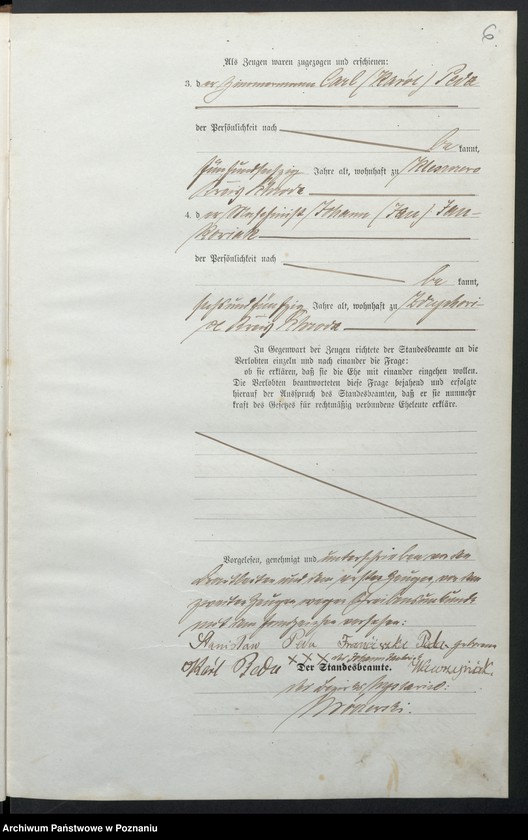 6
Als Zeugen waren zugezogen und erschienen:
3. der Zimmermann Carl (Karól) Peda
der Persönlichkeit nach
be kannt,
fünfundsechzig Jahre alt, wohnhaft zu
Kreis Schroda
4. der Maschinist Johann (Jan) Jan-
kowiak
der Persönlichkeit nach
be kannt,
sechsundfünfzig Jahre alt, wohnhaft zu
Kreis Schroda
In Gegenwart der Zeugen richtete der Standesbeamte an die
Verlobten einzeln und nach einander die Frage:
ob sie erklären, daß sie die Ehe mit einander eingehen wollen.
Die Verlobten beantworteten diese Frage bejahend und erfolgte
hierauf der Ausspruch des Standesbeamten, daß er sie nunmehr
kraft des Gesetzes für rechtmäßig verbundene Eheleute erkläre.
Vorgelesen, genehmigt und unterschrieben von den
Eheleuten und dem ersten Zeugen, von dem
zweiten Zeugen wegen Schreibensunkunde
mit dem Handzeichen versehen:
Stanisław Peda Franciszka Peda geborene
Karól Peda XXX
Der Standesbeamte.
Archiwum Państwowe w Poznaniu